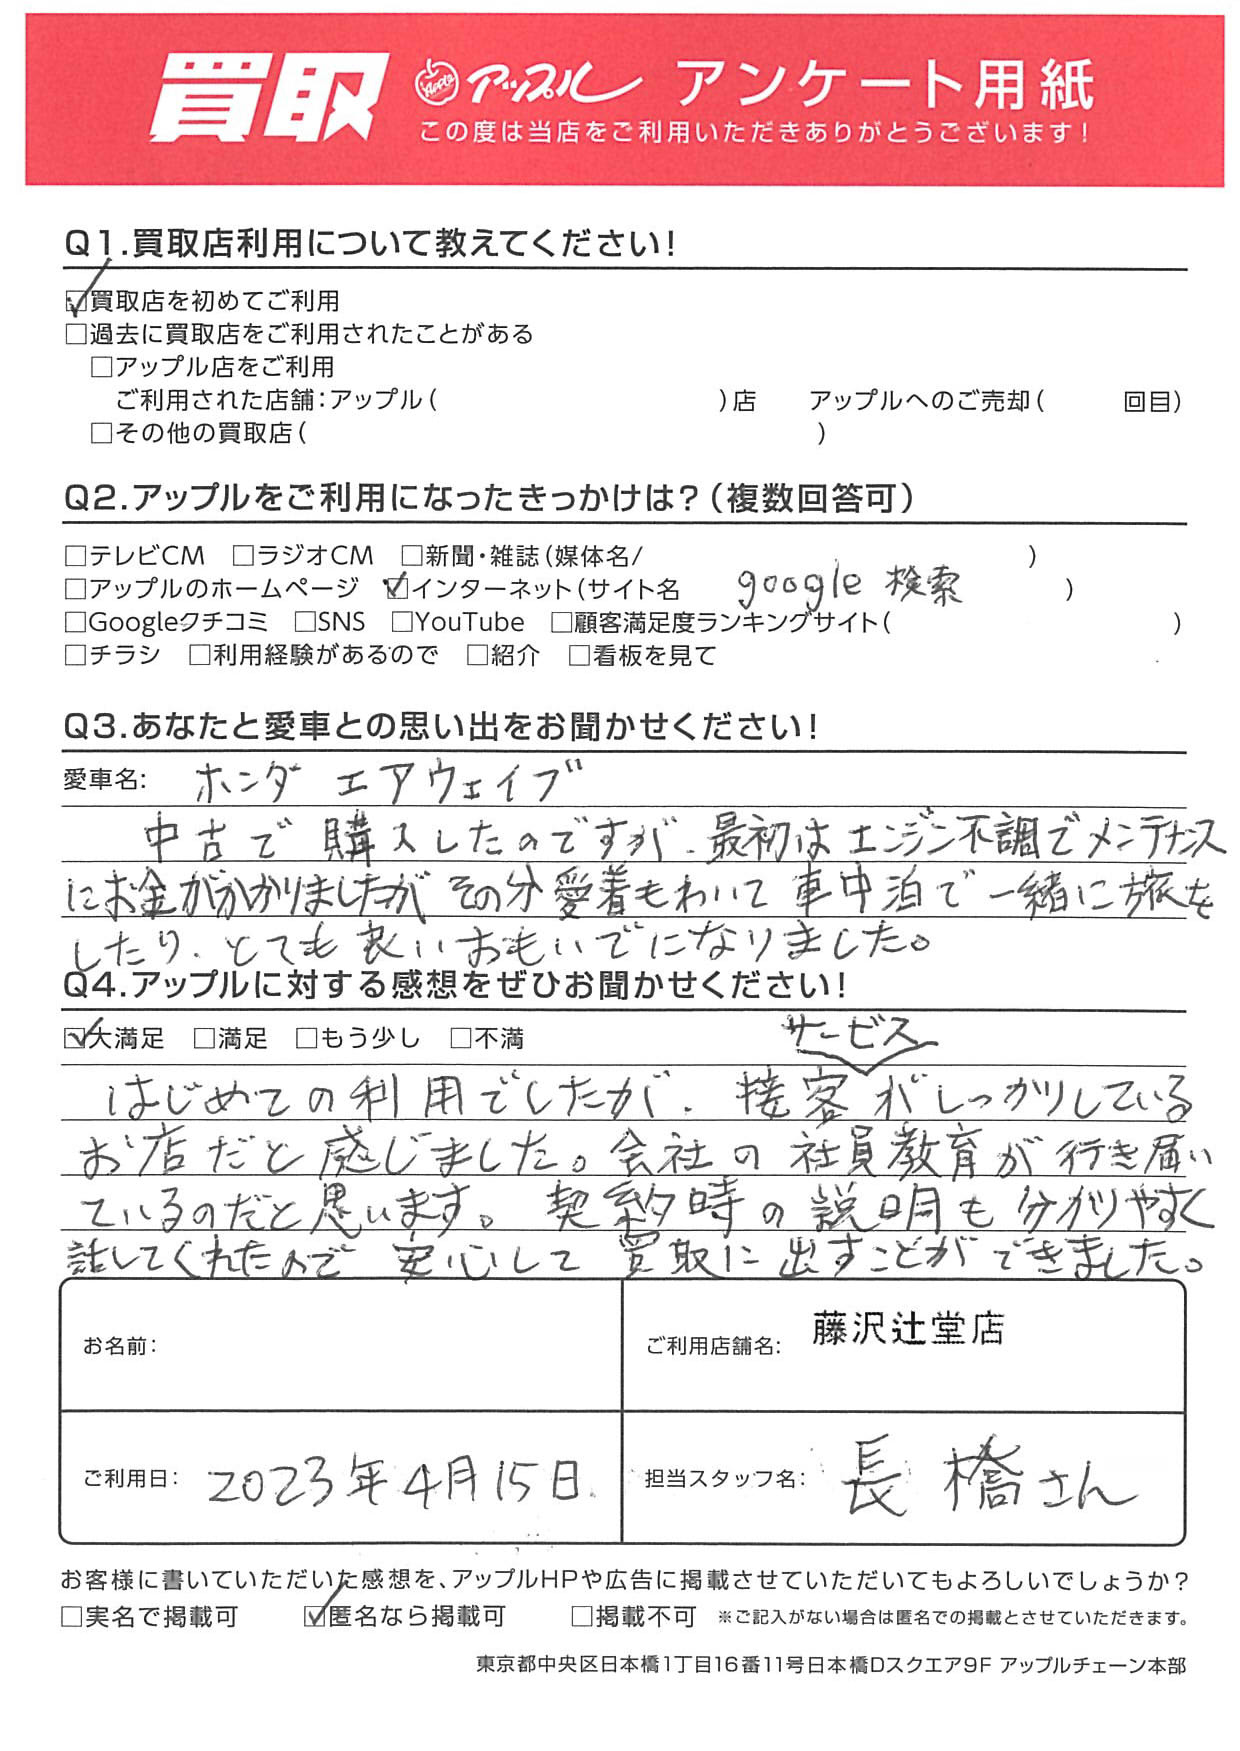 買取 アップル アンケート用紙
この度は当店をご利用いただきありがとうございます!
Q1.買取店利用について教えてください!
☑買取店を初めてご利用
□過去に買取店をご利用されたことがある
□アップル店をご利用
ご利用された店舗:アップル( )店 アップルへのご売却( 回目)
□その他の買取店( )
Q2.アップルをご利用になったきっかけは?(複数回答可)
□テレビCM □ラジオCM □新聞・雑誌(媒体名/ )
□アップルのホームページ ☑インターネット(サイト名 google 検索 )
□Googleクチコミ □SNS □YouTube □顧客満足度ランキングサイト( )
□チラシ □利用経験があるので □紹介 □看板を見て
Q3.あなたと愛車との思い出をお聞かせください!
愛車名: ホンダ エアウェイブ
中古で購入したのですが、最初はエンジン不調でメンテナンス
にお金がかかりましたが その分愛着もわいて 車中泊で一緒に旅を
したり、とても良いおもいでになりました。
Q4.アップルに対する感想をぜひお聞かせください!
☑大満足 □満足 □もう少し □不満
サービス
はじめての利用でしたが、接客がしっかりしている
お店だと感じました。会社の社員教育が行き届い
ているのだと思います。契約時の説明も分かりやすく
話してくれたので 安心して買取に出すことができました。
お名前:
ご利用店舗名: 藤沢辻堂店
ご利用日: 2023年4月15日
担当スタッフ名: 長橋さん
お客様に書いていただいた感想を、アップルHPや広告に掲載させていただいてもよろしいでしょうか?
□実名で掲載可 ☑匿名なら掲載可 □掲載不可 ※ご記入がない場合は匿名での掲載とさせていただきます。
東京都中央区日本橋1丁目16番11号日本橋Dスクエア9F アップルチェーン本部